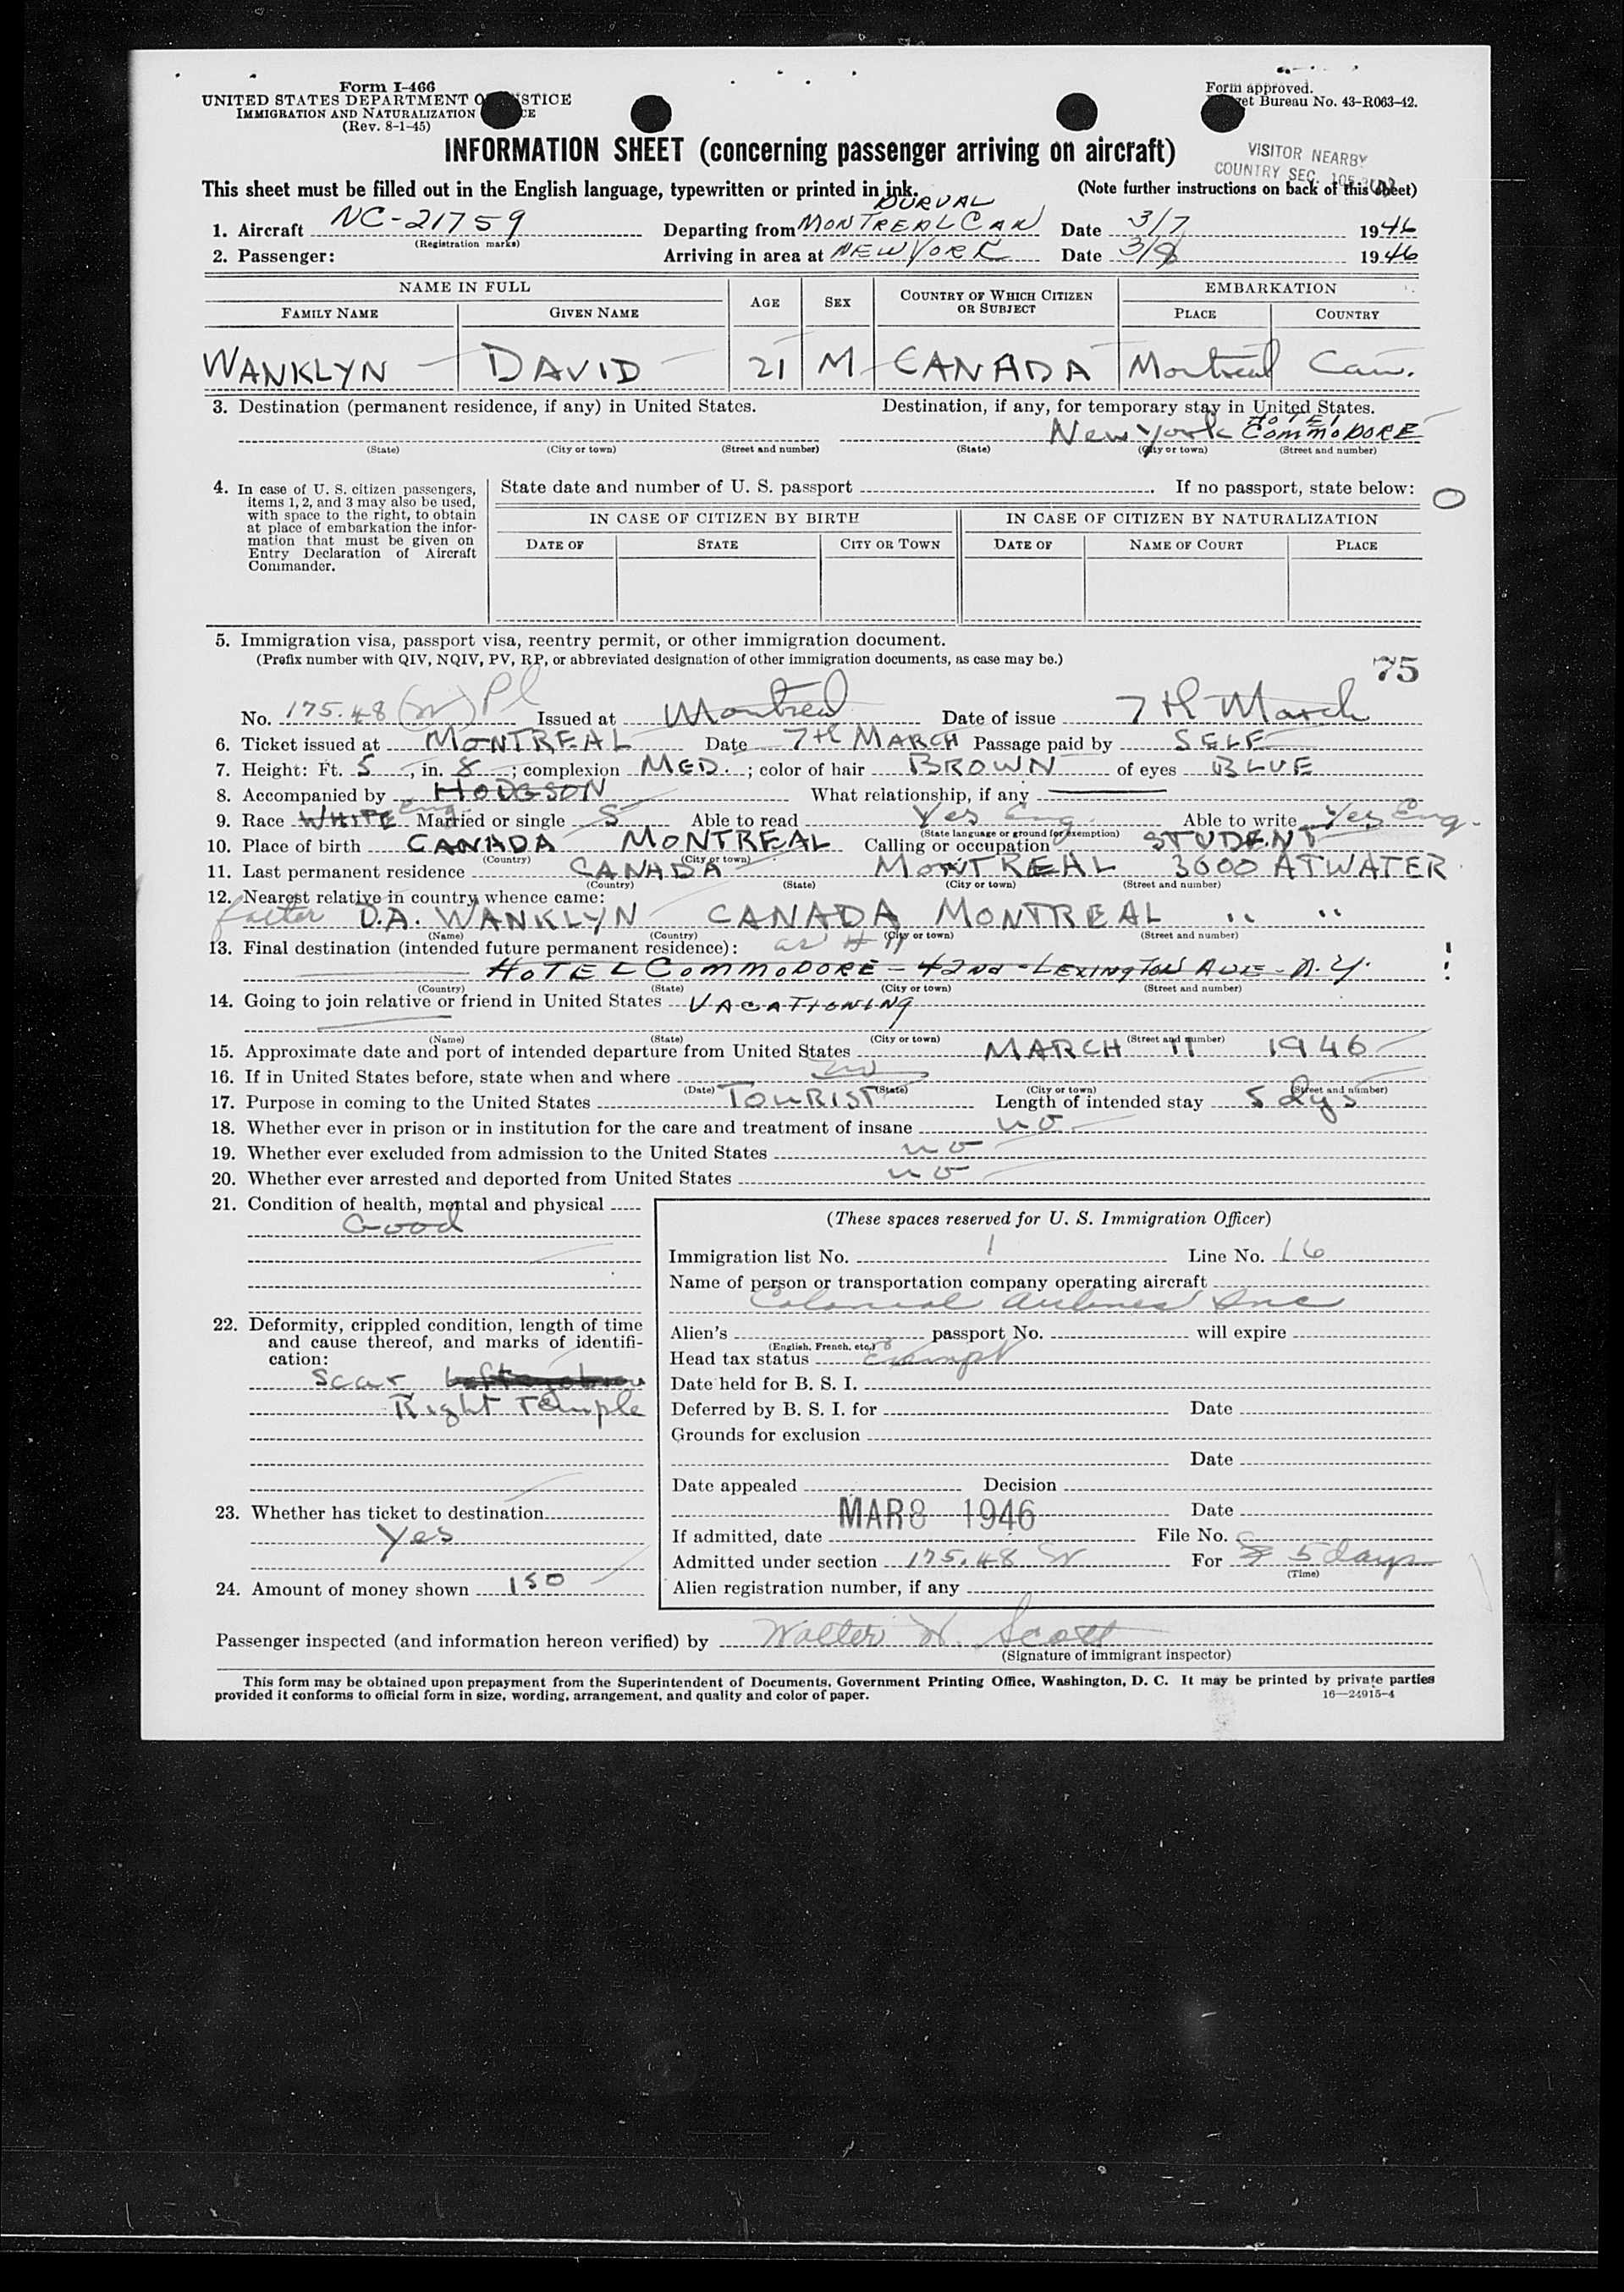 Form I-466
UNITED STATES DEPARTMENT O STICE
IMMIGRATION AND NATURALIZATION CE
(Rev. 8-1-45)
Form approved.
et Bureau No. 43-R063-42.
INFORMATION SHEET (concerning passenger arriving on aircraft)
VISITOR NEARBY
COUNTRY SEC.
This sheet must be filled out in the English language, typewritten or printed in ink. (Note further instructions on back of this sheet)
DORVAL
1. Aircraft NC-21759 Departing from MONTREAL CAN Date 3/7 1946
(Registration marks)
2. Passenger: Arriving in area at NEW YORK Date 3/8 1946
NAME IN FULL AGE SEX COUNTRY OF WHICH CITIZEN OR SUBJECT EMBARKATION
FAMILY NAME GIVEN NAME PLACE COUNTRY
WANKLYN DAVID 21 M CANADA Montreal Can.
3. Destination (permanent residence, if any) in United States. Destination, if any, for temporary stay in United States.
New York HOTEL COMMODORE
(State) (City or town) (Street and number) (State) (City or town) (Street and number)
4. In case of U. S. citizen passengers, items 1, 2, and 3 may also be used, with space to the right, to obtain at place of embarkation the information that must be given on Entry Declaration of Aircraft Commander.
State date and number of U. S. passport . If no passport, state below: O
IN CASE OF CITIZEN BY BIRTH IN CASE OF CITIZEN BY NATURALIZATION
DATE OF STATE CITY OR TOWN DATE OF NAME OF COURT PLACE
5. Immigration visa, passport visa, reentry permit, or other immigration document.
(Prefix number with QIV, NQIV, PV, RP, or abbreviated designation of other immigration documents, as case may be.)
75
No. 175.48 (W) Pl Issued at Montreal Date of issue 7th March
6. Ticket issued at MONTREAL Date 7th MARCH Passage paid by SELF
7. Height: Ft. 5, in. 8; complexion MED.; color of hair BROWN of eyes BLUE
8. Accompanied by HODGSON What relationship, if any
9. Race WHITE Eng. Married or single S Able to read Yes Eng. Able to write Yes Eng.
(State language or ground for exemption)
10. Place of birth CANADA MONTREAL Calling or occupation STUDENT
(Country) (City or town)
11. Last permanent residence CANADA MONTREAL 3600 ATWATER
(Country) (State) (City or town) (Street and number)
12. Nearest relative in country whence came:
father D.A. WANKLYN CANADA MONTREAL " "
(Name) (Country) (City or town) (Street and number)
13. Final destination (intended future permanent residence): as # 11
HOTEL COMMODORE - 42nd - LEXINGTON AVE - N.Y.
(Country) (State) (City or town) (Street and number)
14. Going to join relative or friend in United States VACATIONING
(Name) (State) (City or town) (Street and number)
15. Approximate date and port of intended departure from United States MARCH 11 1946
16. If in United States before, state when and where no
(Date) (State) (City or town) (Street and number)
17. Purpose in coming to the United States TOURIST Length of intended stay 5 dys
18. Whether ever in prison or in institution for the care and treatment of insane no
19. Whether ever excluded from admission to the United States no
20. Whether ever arrested and deported from United States no
21. Condition of health, mental and physical
Good
22. Deformity, crippled condition, length of time and cause thereof, and marks of identification:
Scar
Right Temple
23. Whether has ticket to destination
Yes
24. Amount of money shown 150
(These spaces reserved for U. S. Immigration Officer)
Immigration list No. 1 Line No. 16
Name of person or transportation company operating aircraft
Colonial Airlines Inc
Alien's passport No. will expire
(English, French, etc.)
Head tax status Exempt
Date held for B. S. I.
Deferred by B. S. I. for Date
Grounds for exclusion
Date
Date appealed Decision
MAR 8 1946 Date
If admitted, date File No.
Admitted under section 175.48 W For 5 days
(Time)
Alien registration number, if any
Passenger inspected (and information hereon verified) by Walter W. Scott
(Signature of immigrant inspector)
This form may be obtained upon prepayment from the Superintendent of Documents, Government Printing Office, Washington, D. C. It may be printed by private parties
provided it conforms to official form in size, wording, arrangement, and quality and color of paper.
16—24915-4